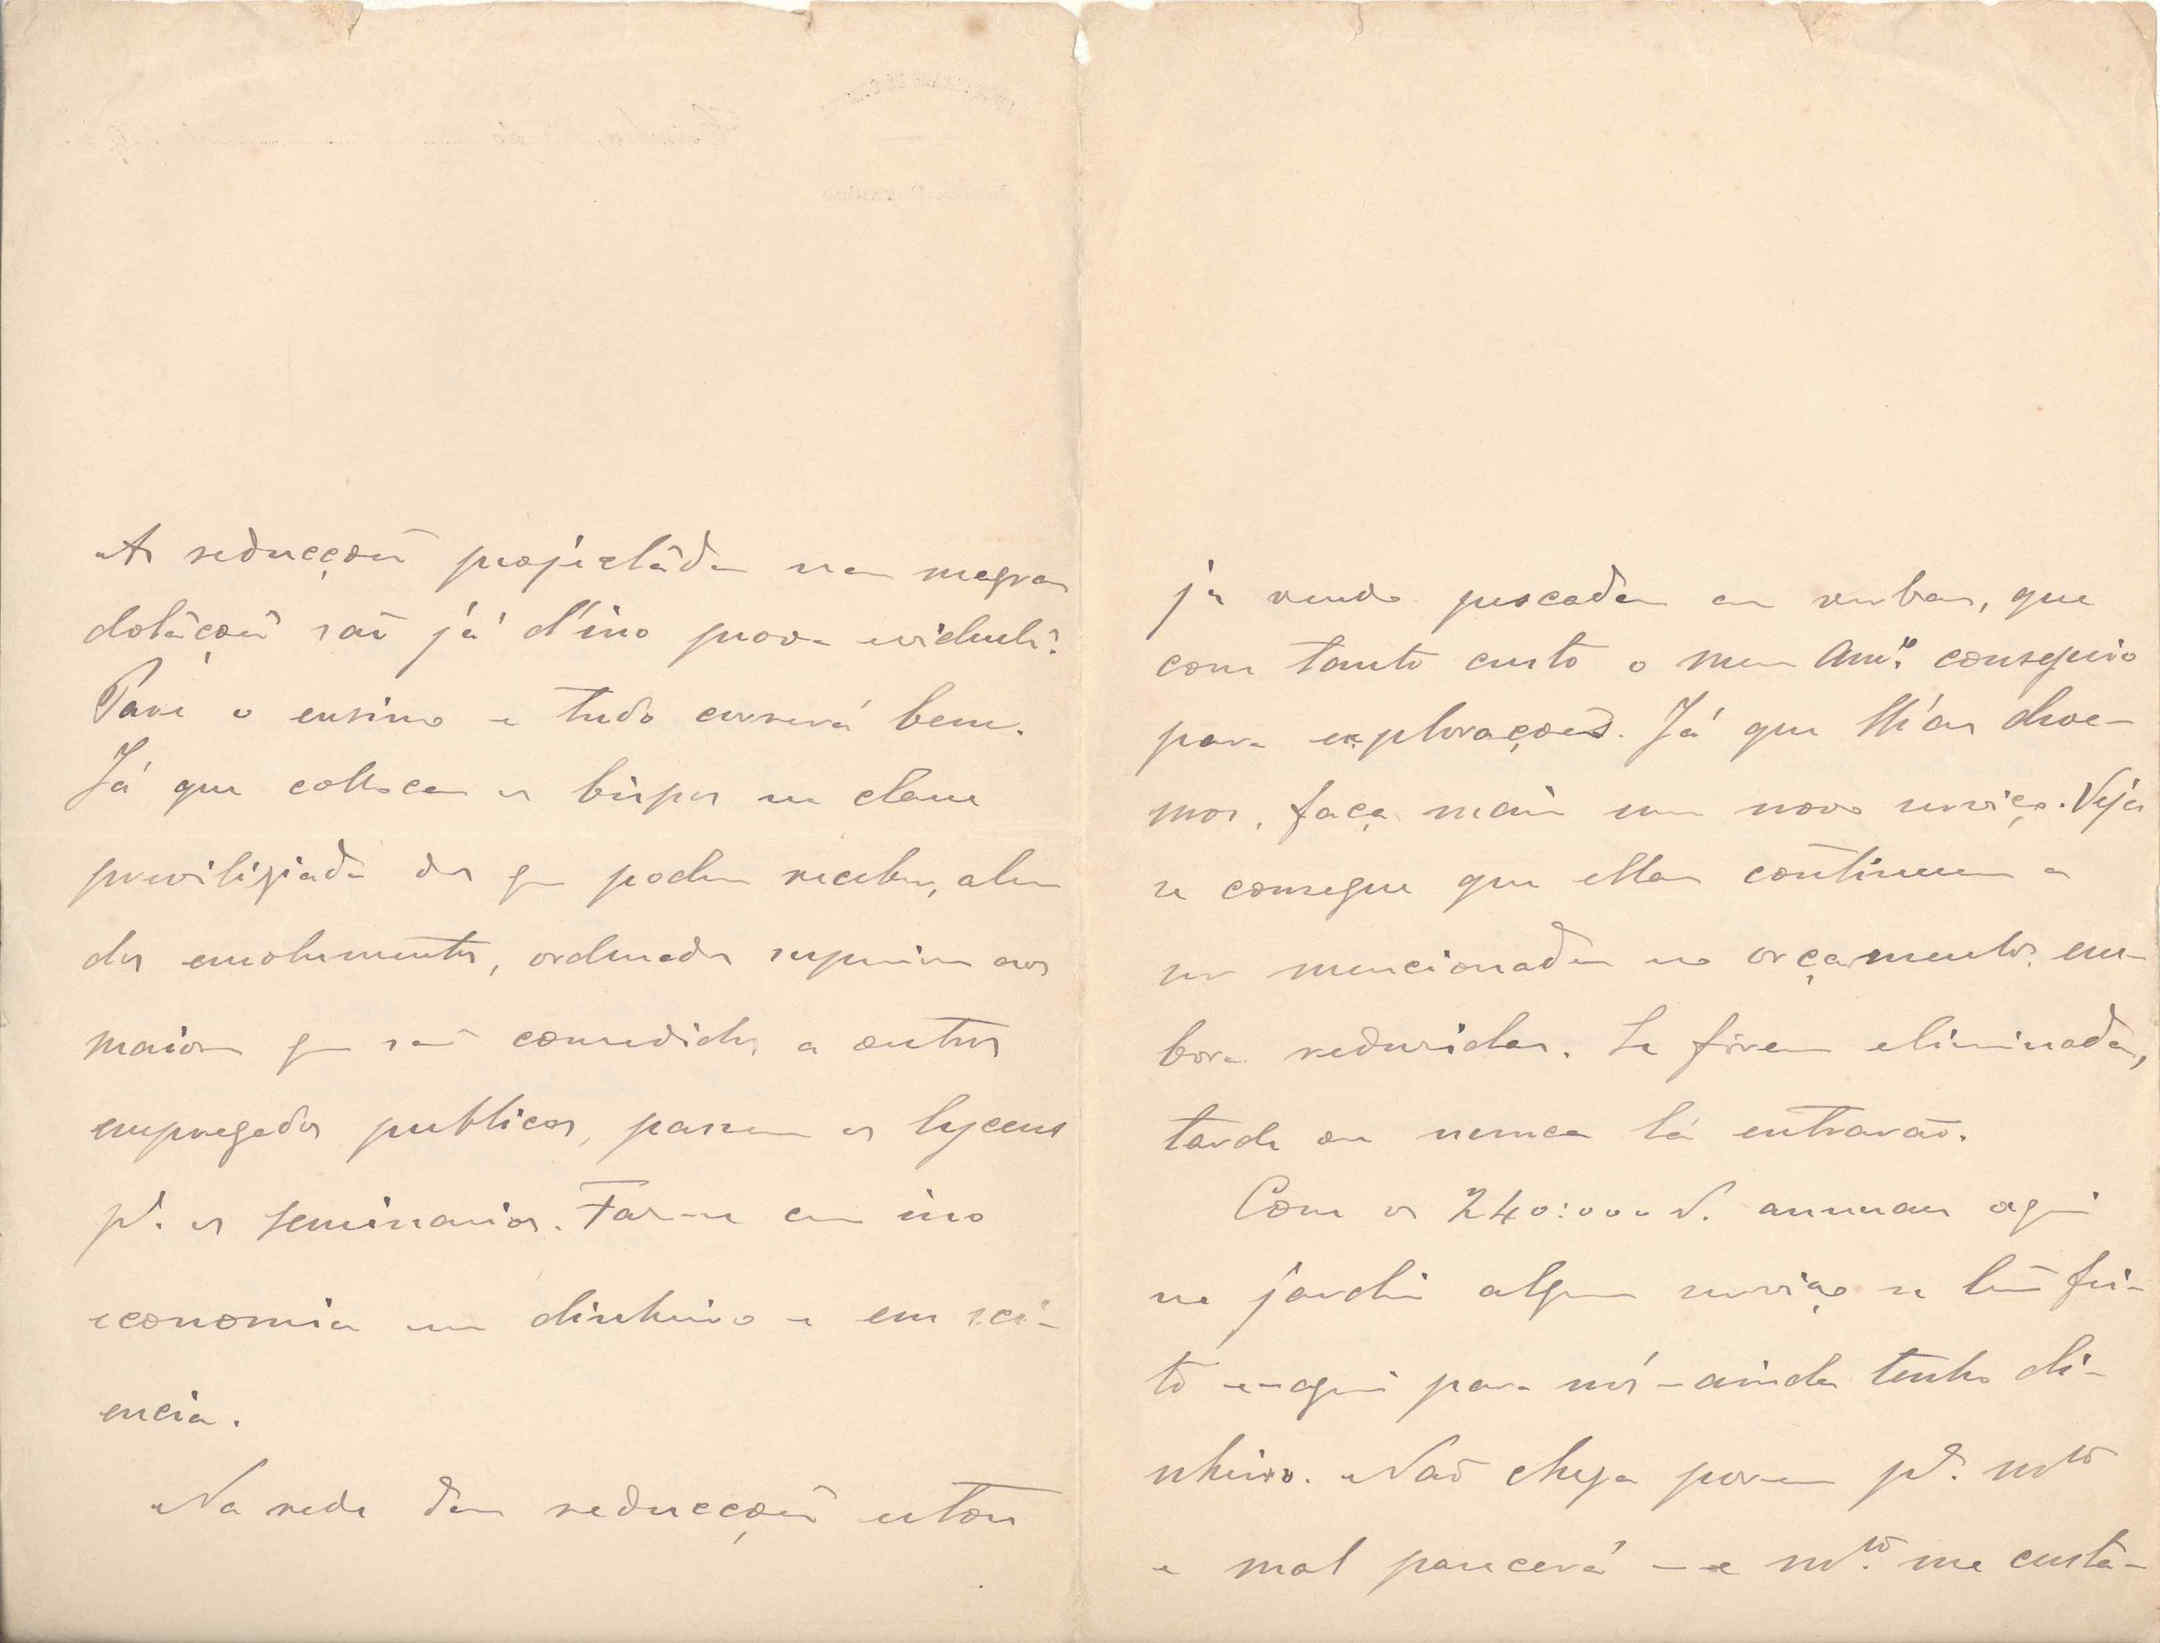 As reducções projectadas nas magras
dotações são já d'isso prova evidente.
Pare o ensino e tudo correrá bem.
Já que collocam os bispos na classe
previligiada dos q podem receber, alem
dos emolumentos, ordenados superiores aos
maiores q são concedidos a outros
empregados publicos, passem os lyceus
pª. os seminarios. Faz-se em isso
economia em dinheiro e em sci-
encia.
Na rede das reducções estou
já vendo pescadas as verbas, que
com tanto custo o meu Amº. conseguio
para explorações. Já que lh'as deve-
mos, faça mais um novo serviço. Veja
se consegue que ellas continuem a
ser mencionadas no orçamento, em-
bora redusidas. Se forem eliminadas,
tarde ou nunca lá entrarão.
Com os 240:000 rs. annuaes aqui
no jardim algum serviço se tem fei-
to e—aqui para nós—ainda tenho di-
nheiro. Não chega porem pª. mtº
e mal parecerá — e mtº. me custa-